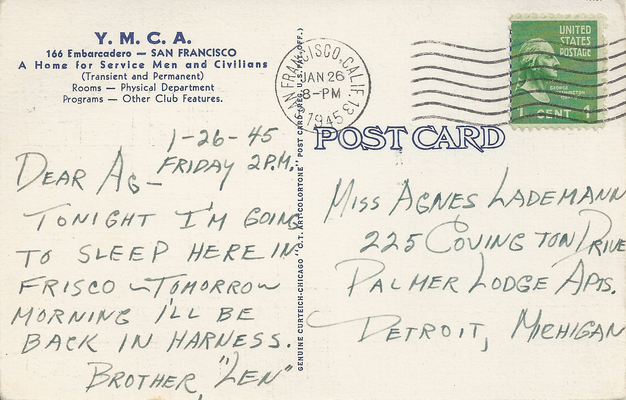 Y. M. C. A.
166 Embarcadero — SAN FRANCISCO
A Home for Service Men and Civilians
(Transient and Permanent)
Rooms — Physical Department
Programs — Other Club Features.
1-26-45
FRIDAY 2P.M.
DEAR AG—
TONIGHT I'M GOING
TO SLEEP HERE IN
FRISCO — TOMORROW
MORNING I'LL BE
BACK IN HARNESS.
BROTHER, "LEN"
GENUINE CURTEICH-CHICAGO "C.T. ART-COLORTONE" POST CARD (REG. U.S. PAT. OFF.)
SAN FRANCISCO, CALIF. 13
JAN 26
8-PM
1945
UNITED
STATES
POSTAGE
GEORGE
WASHINGTON
1 CENT 1
POST CARD
MISS AGNES LADEMANN
225 COVINGTON DRIVE
PALMER LODGE APTS.
DETROIT, MICHIGAN